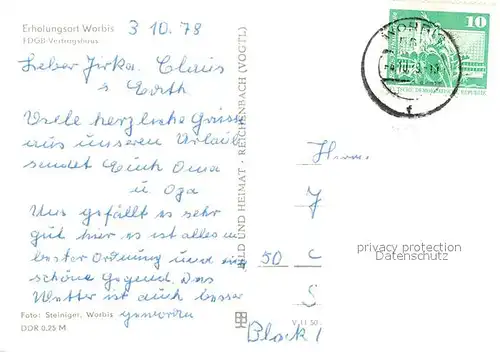 Erholungsort Worbis
3 10. 78
FDGB-Vertragshaus
Lieber Jirka. Claus
&
Viele herzliche Grüsse
aus unseren Urlaub
sendet Euch Oma
u Opa
Uns gefällt es sehr
gut hier, es ist alles in
bester Ordnung und eine
schöne Gegend. Das
Wetter ist auch besser
geworden
Foto: Steiniger, Worbis
DDR 0,25 M
BILD UND HEIMAT · REICHENBACH (VOGTL)
V 11 50
WORBIS
10
DEUTSCHE DEMOKRATISCHE REPUBLIK
Herrn
J
50 C
S
Block 1
privacy protection
Datenschutz